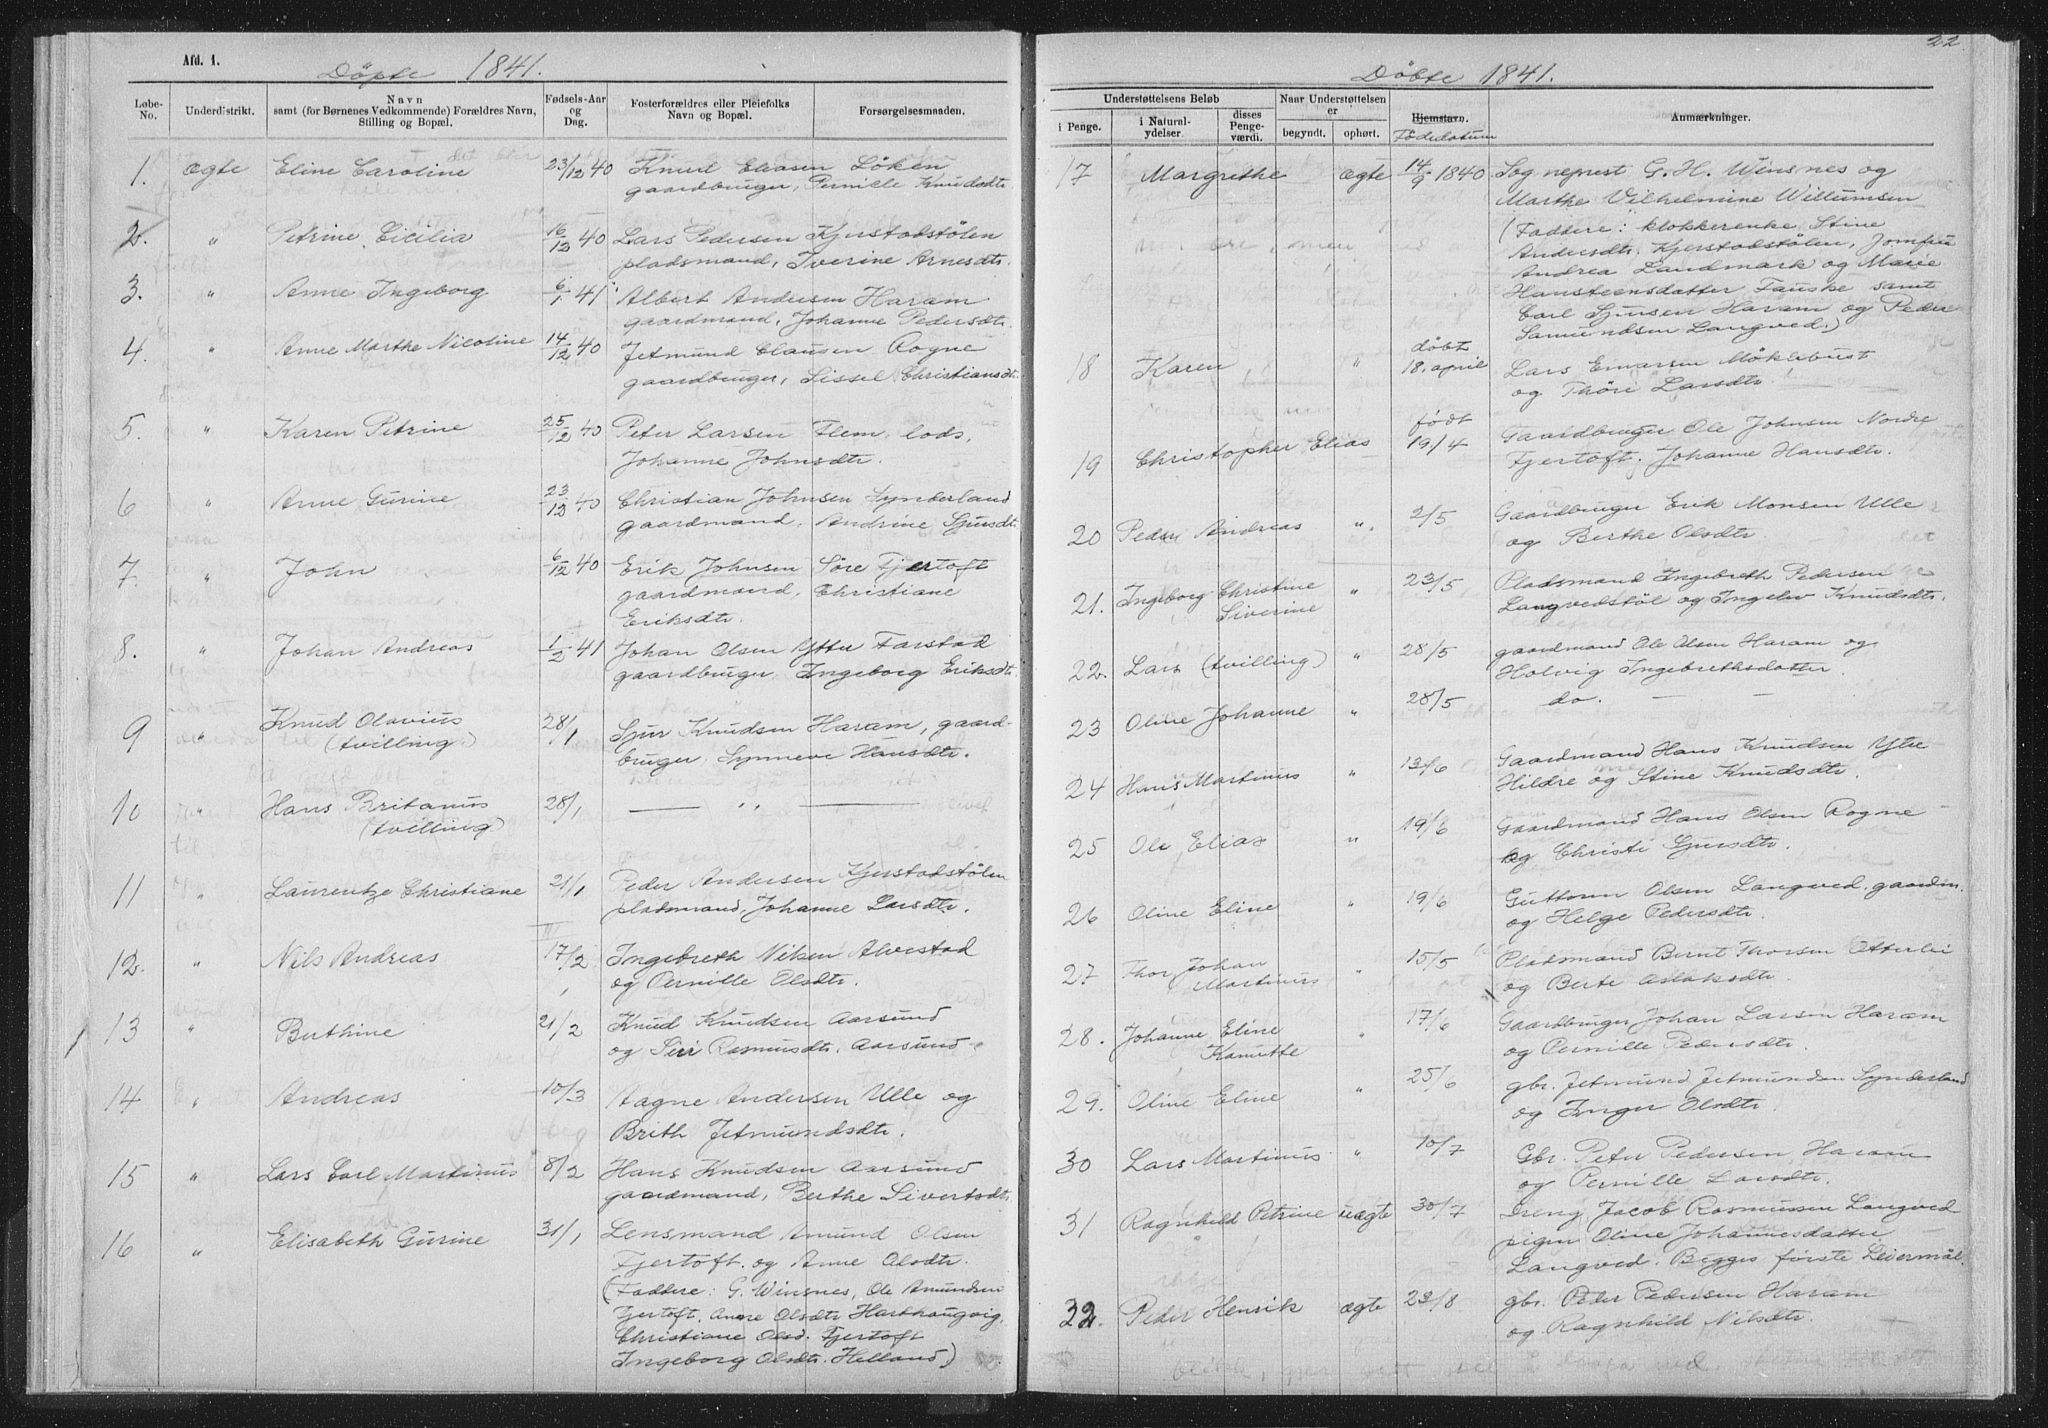 Afd. 1.
Döpte 1841.
Løbe-No.
Underdistrikt.
Navn
samt (for Børnenes Vedkommende) Forældres Navn,
Stilling og Bopæl.
Fødsels-Aar
og
Dag.
Fosterforældres eller Pleiefolks
Navn og Bopæl.
Forsørgelsesmaaden.
1. ægte Eline Caroline 23/12 40 Knud Eliasen Löken
gaardbruger, Pernicle Knudsdtr.
2. " Petrine Cicilia 16/12 40 Lars Pedersen Kjerstadstölen
pladsmand, Iverine Arnesdtr.
3. " Anne Ingeborg 6/1 41 Albert Andersen Haram
gaardmand, Johanne Pedersdtr.
4. " Anne Marthe Nicoline 14/12 40 Jetmund Clausen Rogne
gaardbruger, Sissel Christiansdtr.
5. " Karen Petrine 25/12 40 Peter Larsen Flem, lods,
Johanne Johnsdtr.
6 " Anne Gurine 23/12 40 Christian Johnsen Synderland
gaardmand, Andrine Sjursdtr.
7. " John 6/12 40 Erik Johnsen Söre Fjertoft
gaardmand, Christiane
Eriksdtr.
8. " Johan Andreas 1/2 41 Johan Olsen Ytter Farstad
gaardbruger, Ingeborg Eriksdtr.
9 " Knud Olavius 28/1 Sjur Knudsen Haram, gaard-
(tvilling) bruger, Synneve Hansdtr.
10 " Hans Britanus 28/1 — " —
(tvilling)
11 " Laurentze Christiane 21/1 Peder Andersen Kjerstadstölen
pladsmand, Johanne Larsdtr.
12. " Nils Andreas 17/2 Ingebreth Nilsen Alvestad
og Pernille Olsdtr.
13 " Berthine 21/2 Knud Knudsen Aarsund
og Siri Rasmusdtr. Aarsund
14 " Andreas 10/3 Aagne Andersen Ulle og
Brith Jetmundsdtr.
15 " Lars Carl Martinus 8/2 Hans Knudsen Aarsund
gaardmand, Berthe Sivertsdtr.
16 " Elisabeth Gurine 31/1 Lensmand Amund Olsen
Fjertoft og Anne Olsdtr.
(Faddere: G. Winsnes, Ole Amundsen
Fjertoft, Anne Olsdtr Harthaugvig,
Christiane Olsd. Fjertoft
Ingeborg Olsdtr. Helland)
22.
Döbte 1841.
Understøttelsens Beløb
i Penge.
i Natural-
ydelser.
disses
Penge-
værdi.
Naar Understøttelsen
er
begyndt.
ophørt.
Hjemstavn.
Födedatum
Anmærkninger.
17 Margrethe ægte 14/9 1840 Sogneprest G. H. Winsnes og
Marthe Vilhelmine Willumsen
(Faddere: klokkerenke Stine
Andersdtr. Kjerstadstölen, Jomfru
Andrea Landmark og Marie
Hansteensdatter Fauske samt
Carl Sjursen Haram og Peder
Samundsen Langved.)
18 Karen " döbt
18. april Lars Einarsen Möklebust
og Thöri Larsdtr.
19 Christopher Elias " födt
19/4 Gaardbruger Ole Johnsen Nordre
Fjertoft. Johanne Hansdtr.
20 Peder Andreas " 2/5 Gaardbruger Erik Monsen Ulle
og Berthe Olsdtr.
21. Ingeborg Christine " 23/5 Pladsmand Ingebreth Pedersen
Siverine Langvedstöl og Ingelev Knudsdtr.
22. Lars (tvilling) " 28/5 gaardmand Ole Olsen Haram og
Holvig Ingebrethsdatter.
23 Oline Johanne " 28/5 do. — —
24 Hans Martinus " 13/6 Gaardmand Hans Knudsen Ytre
Hildre og Stine Knudsdtr.
25 Ole Elias " 19/6 Gaardmand Hans Olsen Rogne
og Christi Sjursdtr.
26 Oline Eline " 19/6 Guttorm Olsen Langved, gaardm.
og Helge Pedersdtr.
27 Thor Johan " 15/5 Pladsmand Bernt Thorsen Otterlei
Martinus og Berte Aslaksdtr.
28. Johanne Eline " 17/6 Gaardbruger Johan Larsen Haram
Kanutte og Pernille Pedersdtr.
29. Oline Eline " 25/6 gbr. Jetmund Jetmundsen Synderland
og Inger Olsdtr.
30 Lars Martinus " 10/7 Gbr. Peter Pedersen Haram
og Pernille Larsdtr.
31 Ragnhild Petrine uægte 30/7 Dreng Jacob Rasmussen Langved
pigen Oline Johannesdatter
Langved. Begges förste Leiermål.
32. Peder Henrik ægte 22/8 gbr. Peder Pedersen Haram
og Ragnhild Nilsdtr.